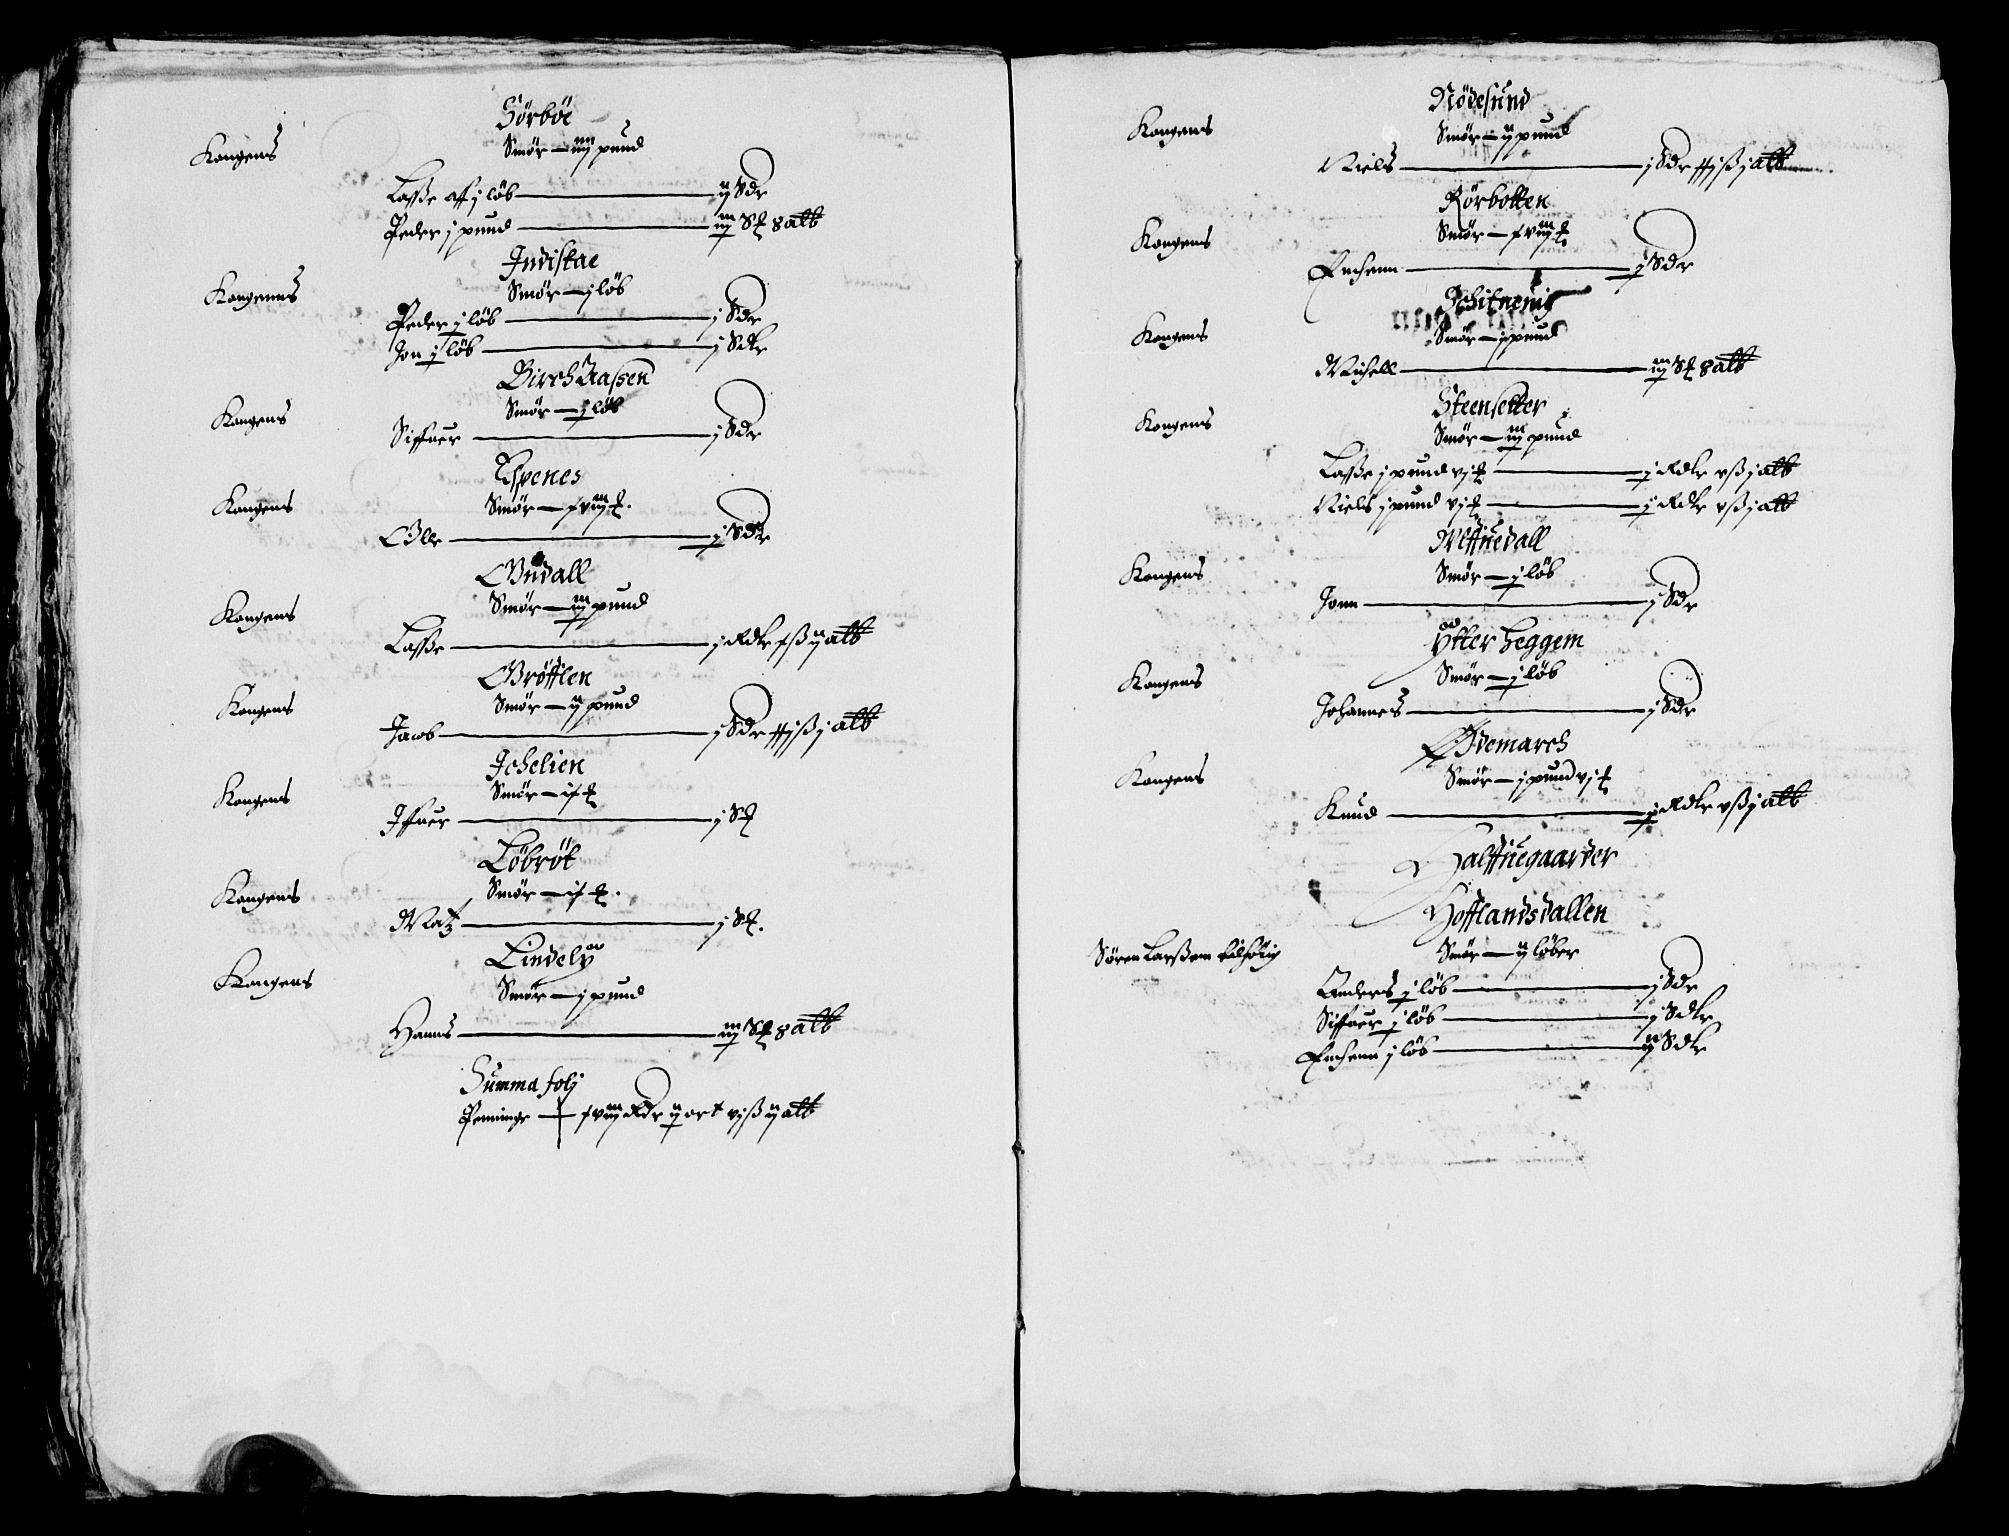 Sörböe
Kongens
Smör — iiij pund
Lasse aff j löb — ij Sdr
Peder j pund — iij S₰ 8 alb
Indistae
Kongenns
Smör — j löb
Peder j löb — j Sdr
Jon j löb — j Sdlr
BirchAassen
Kongens
Smör — j löb
Siffuer — j Sdr
Espenes
Kongens
Smör — xviij ₰.
Olle — j Sdlr
Ondall
Kongens
Smör — iij pund
Lasse — j Rdlr xß ij alb
Grófflen
Kongens
Smör — ij pund
Jacob — j Sdr xxjß j alb
Ichelien
Kongens
Smör — ix ₰
Iffuer — j S₰
Löbröt
Kongens
Smör — ix ₰.
Matz — j S₰.
Lindely
Kongens
Smör — j pund
Hanns — iij S₰ 8 alb
Summa folj
Penninge — xviij Rdr ij ort vjß ij alb
Nödesund
Kongens
Smör — ij pund
Niels — j Sdr xxjß j alb
Rörbotten
Kongens
Smör — xviij ₰
Erchenn — j Sdr
Kongens
Smör — j pund
Michell — iij S₰ 8 alb
Steensetter
Kongens
Smör — iij pund
Lasse j pund vj ₰ — j Rdlr vß j alb
Niels j pund vj ₰ — j Rdlr vß j alb
Melffuedall
Kongens
Smör — j löb
Jonn — j Sdr
Ytter heggem
Kongens
Smör — j löb
Johannes — j Sdr
Ödemarch
Kongens
Smör — j pund vj ₰
Knud — j Rdlr vß j alb
Halffuegaarder
Hofflandsdallen
Sören Larßenn tilhörig
Smör — ij löber
Anders j löb — j Sdr
Siffuer j löb — j Sdlr
Erchenn j löb — ij Sdlr